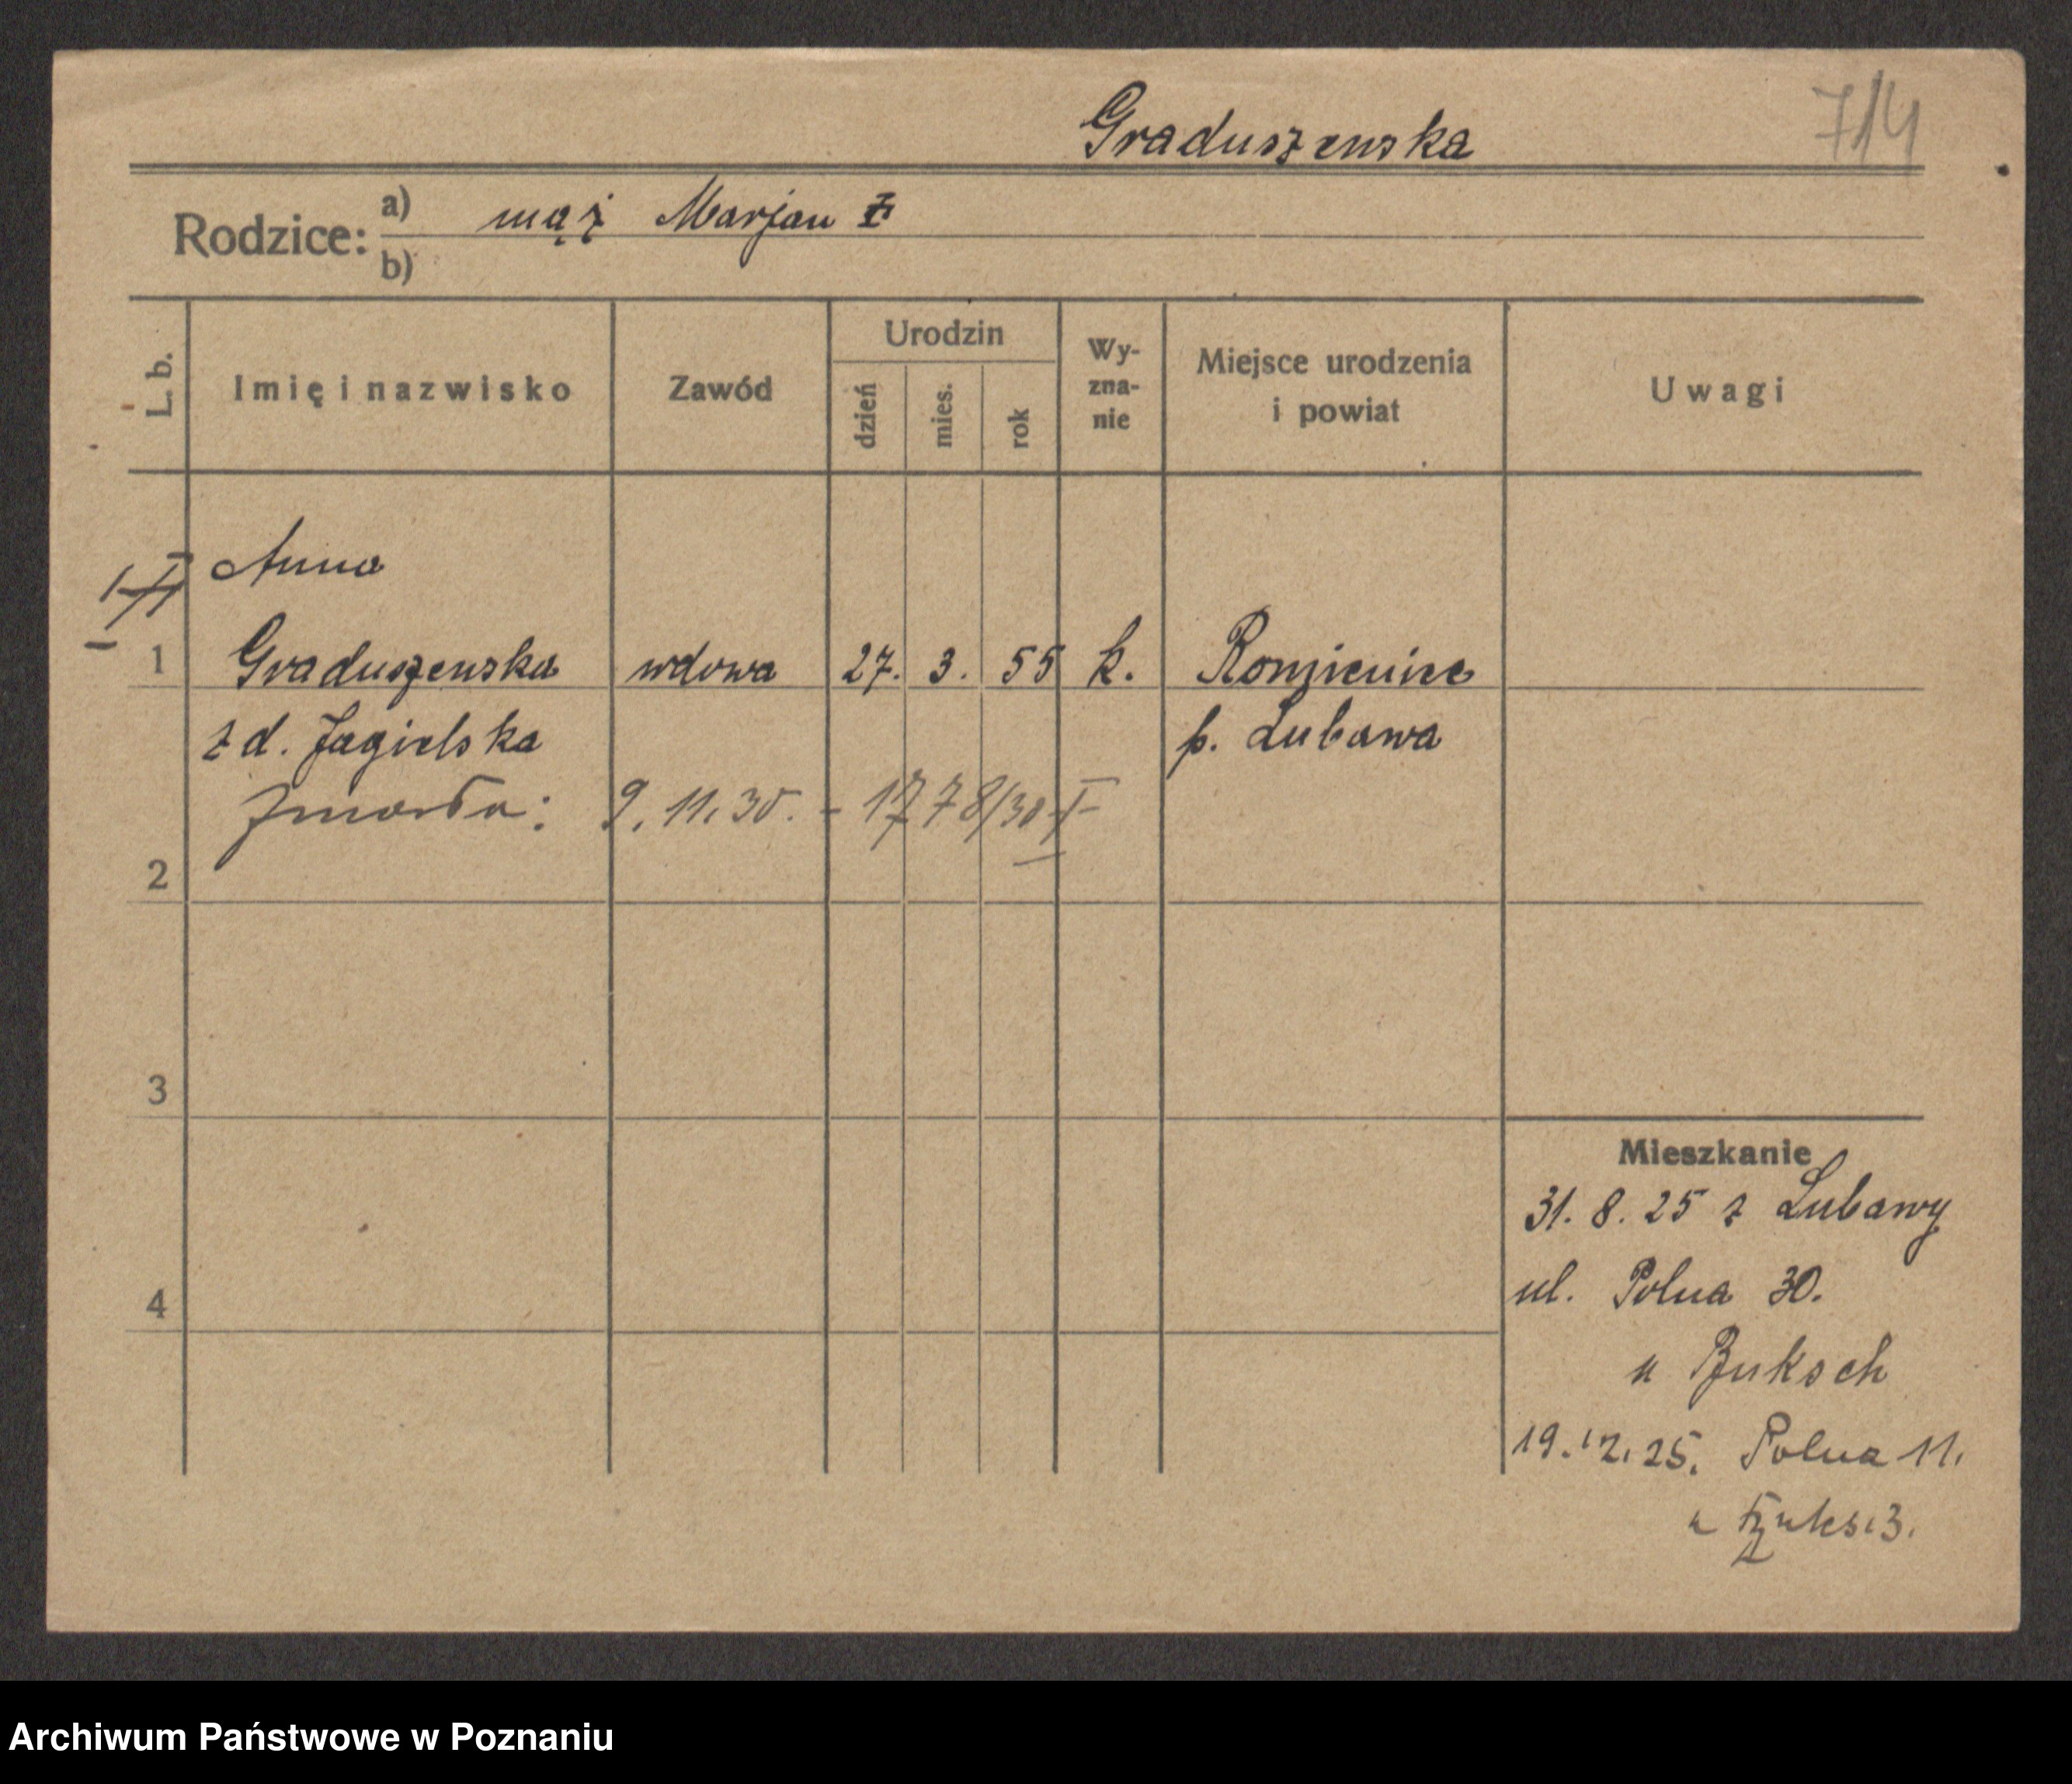 Graduszewska
714
Rodzice: a) mąż Marjan
b)
L. b.
Imię i nazwisko
Zawód
Urodzin
dzień
mies.
rok
Wy-
zna-
nie
Miejsce urodzenia
i powiat
Uwagi
Anna
1 Graduszewska wdowa 27. 3. 55 k.
z d. Jagielska p. Lubawa
Zmarła: 9. 11. 30. - 1778/30
2
3
4
Mieszkanie
31. 8. 25 z Lubawy
ul. Polna 30.
u
19. 12. 25. Polna 11.
u
Archiwum Państwowe w Poznaniu